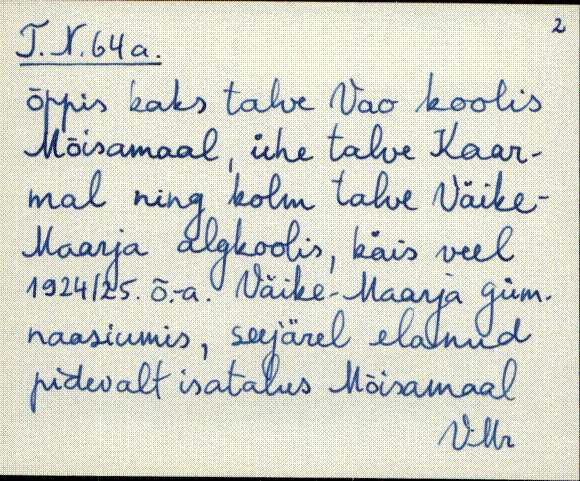 2
T. N. 64 a.
õppis kaks talve Vao koolis
Mõisamaal, ühe talve Kaar-
mal ning kolm talve Väike-
Maarja algkoolis, käis veel
1924/25. õ.-a. Väike-Maarja güm-
naasiumis, seejärel elanud
pidevalt isatalus Mõisamaal
VMr